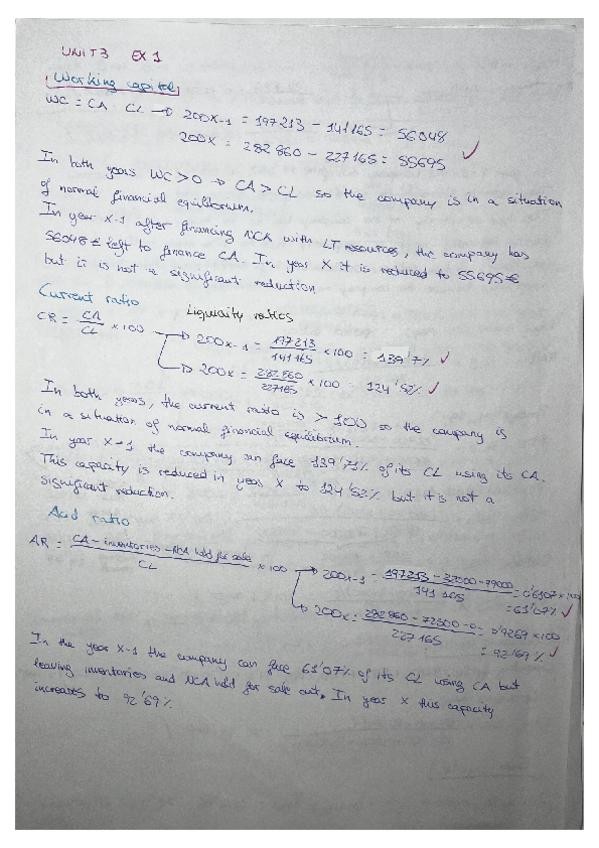 UNIT 3 EX 1
Working capital
WC = CA CL → 200X-1 = 197213 - 141165 = 56048 ✓
200X = 282860 - 227165 = 55695
In both years WC > 0 → CA > CL so the company is in a situation
of normal financial equilibrium.
In year X-1 after financing NCA with LT resources, the company has
56048€ left to finance CA. In year X it is reduced to 55695€
but it is not a significant reduction
Current ratio Liquidity ratios
CR = CA/CL × 100 → 200X-1 = 197213/141165 × 100 = 139'7% ✓
→ 200X = 282860/227165 × 100 = 124'52% ✓
In both years, the current ratio is > 100 so the company is
in a situation of normal financial equilibrium.
In year X-1 the company can face 139'71% of its CL using its CA.
This capacity is reduced in year X to 124'52% but it is not a
significant reduction.
Acid ratio
AR = CA - inventories - NCA held for sale/CL × 100 → 200X-1 = 197213 - 32000 - 79000/141165 = 0'6107 × 100
= 61'07% ✓
→ 200X = 282860 - 72300 - 0/227165 = 0'9269 × 100
= 92'69% ✓
In the year X-1 the company can face 61'07% of its CL using CA but
leaving inventories and NCA held for sale out. In year X this capacity
increases to 92'69%